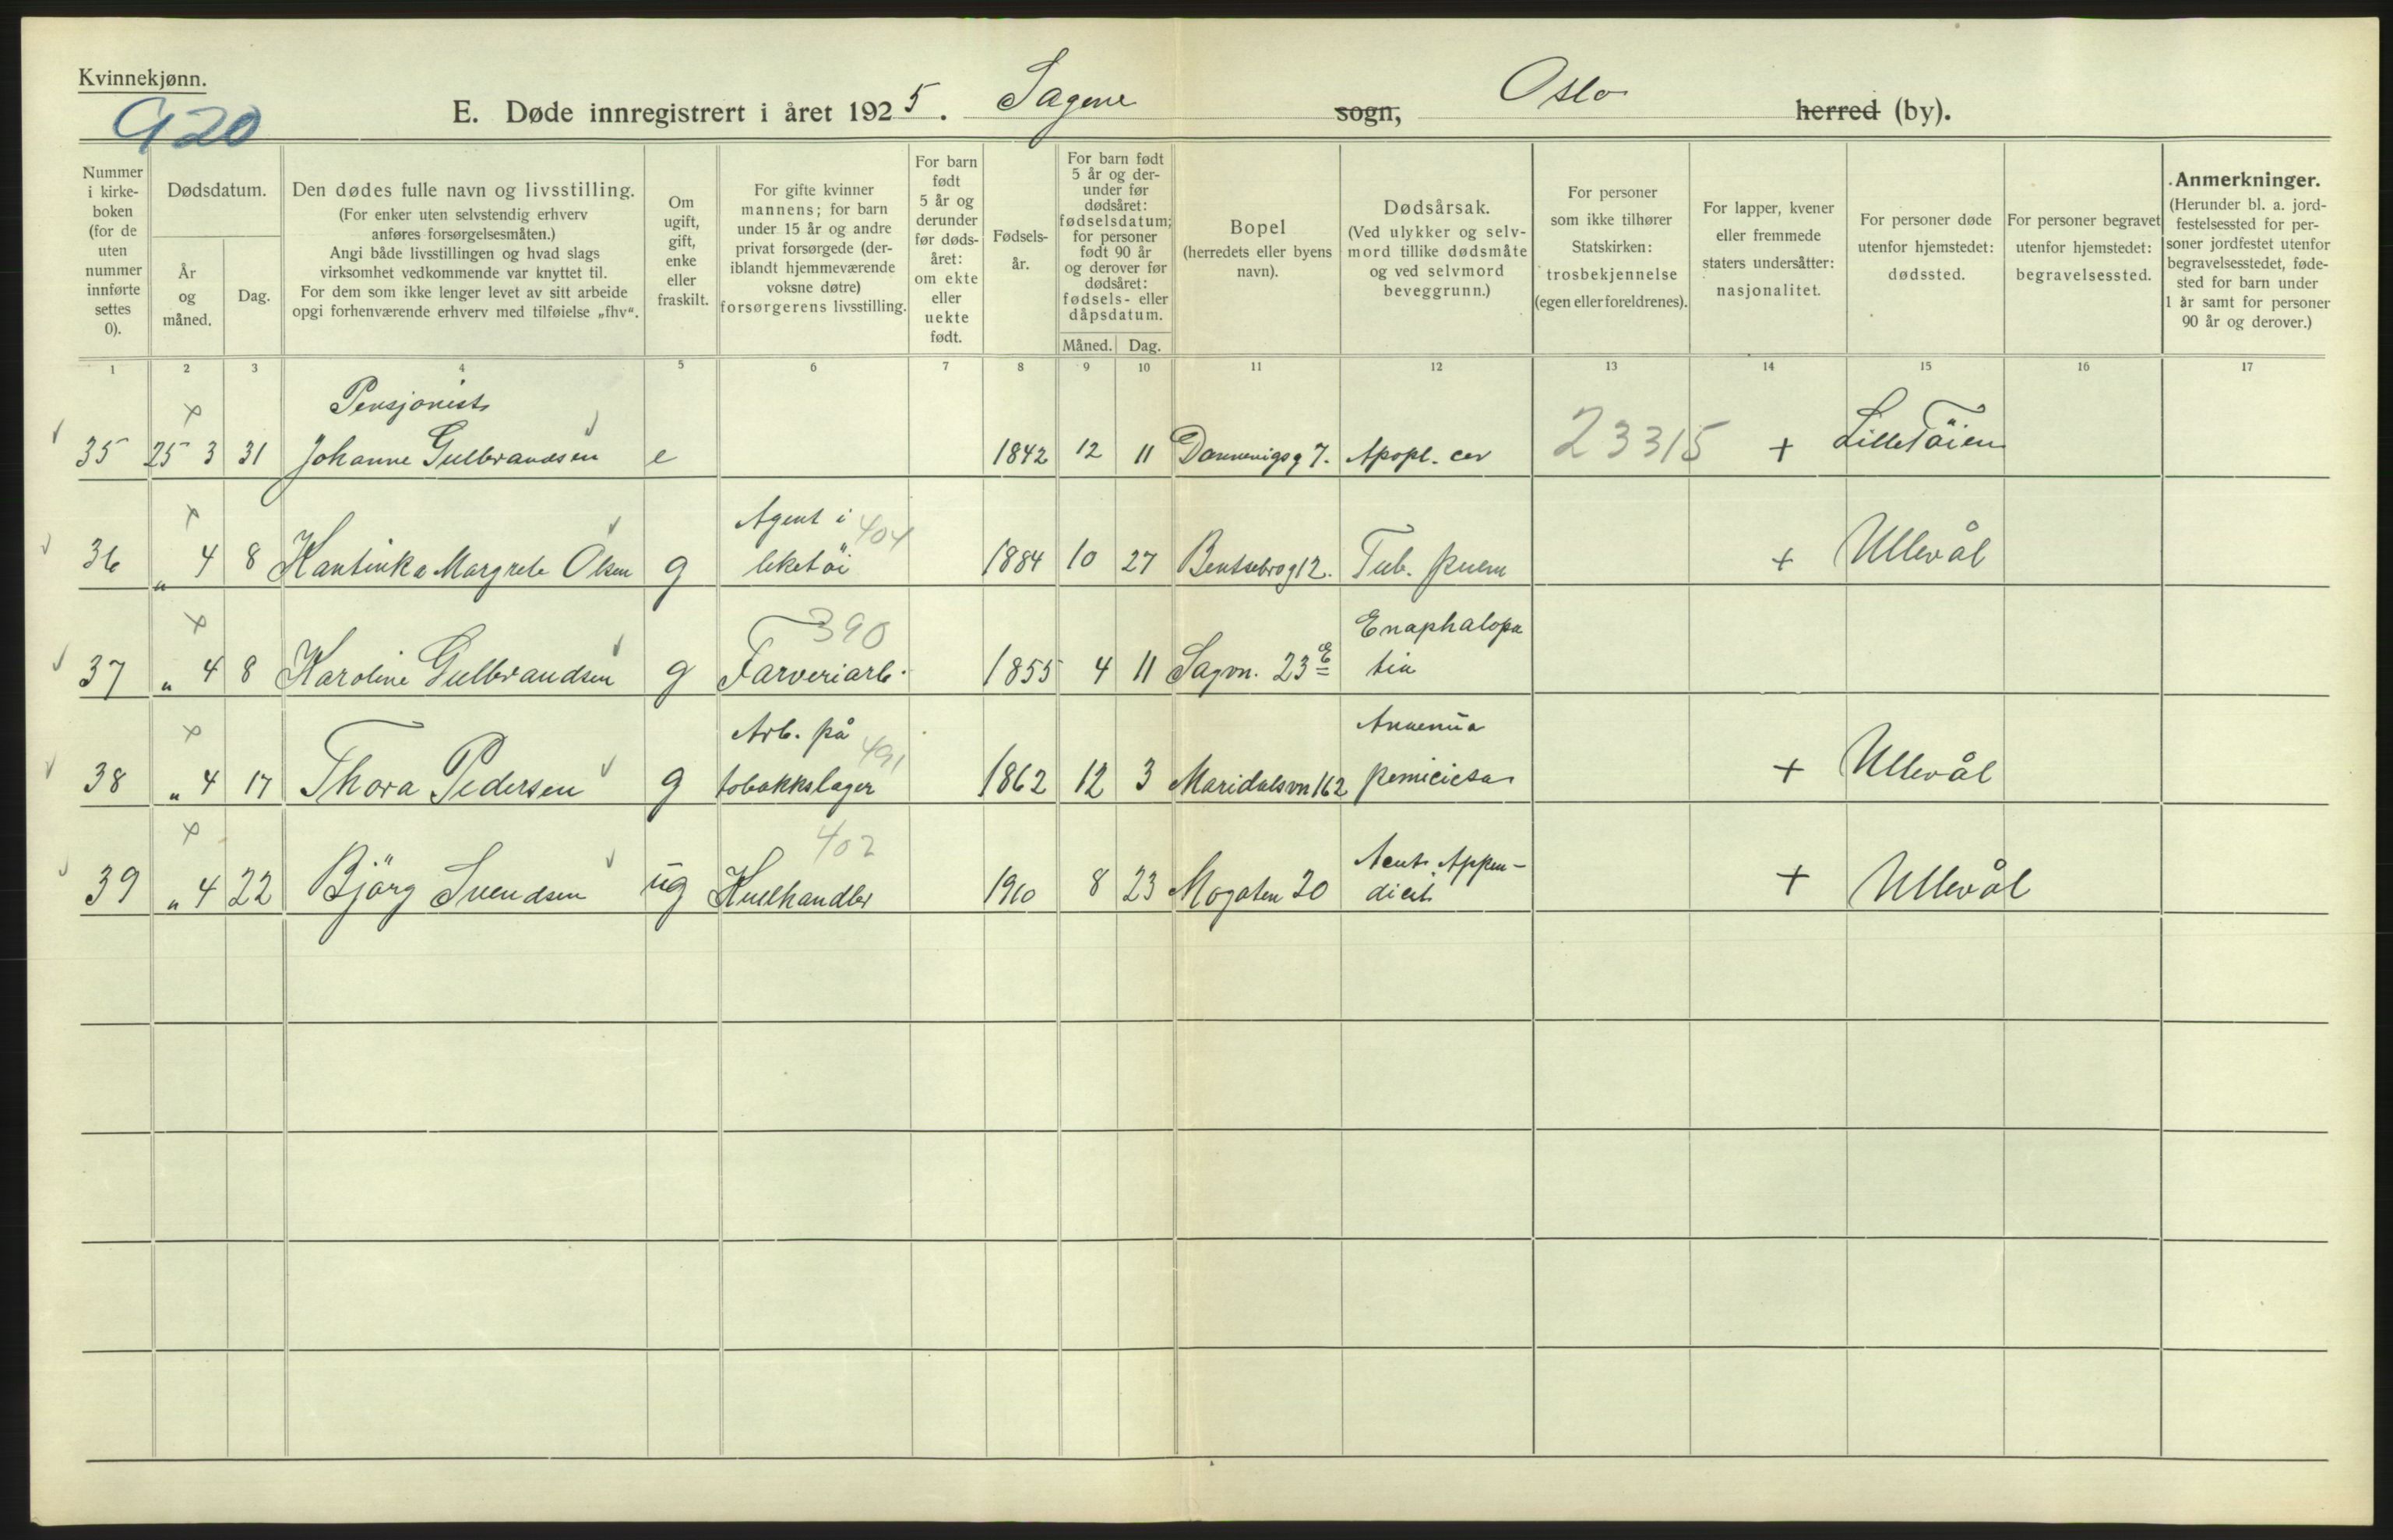 Kvinnekjønn.
920
E. Døde innregistrert i året 1925. Sagene sogn, Oslo herred (by).
Nummer i kirkeboken (for de uten nummer innførte settes 0).
Dødsdatum.
År og måned.
Dag.
Den dødes fulle navn og livsstilling.
(For enker uten selvstendig erhverv anføres forsørgelsesmåten.)
Angi både livsstillingen og hvad slags virksomhet vedkommende var knyttet til.
For dem som ikke lenger levet av sitt arbeide opgi forhenværende erhverv med tilføielse „fhv“.
Om ugift, gift, enke eller fraskilt.
For gifte kvinner mannens; for barn under 15 år og andre privat forsørgede (deriblandt hjemmeværende voksne døtre) forsørgerens livsstilling.
For barn født 5 år og derunder før dødsåret: om ekte eller uekte født.
Fødselsår.
For barn født 5 år og derunder før dødsåret: fødselsdatum; for personer født 90 år og derover før dødsåret: fødsels- eller dåpsdatum.
Måned. Dag.
Bopel
(herredets eller byens navn).
Dødsårsak.
(Ved ulykker og selvmord tillike dødsmåte og ved selvmord beveggrunn.)
For personer som ikke tilhører Statskirken: trosbekjennelse (egen eller foreldrenes).
For lapper, kvener eller fremmede staters undersåtter: nasjonalitet.
For personer døde utenfor hjemstedet: dødssted.
For personer begravet utenfor hjemstedet: begravelsessted.
Anmerkninger.
(Herunder bl. a. jordfestelsessted for personer jordfestet utenfor begravelsesstedet, fødested for barn under 1 år samt for personer 90 år og derover.)
1 2 3 4 5 6 7 8 9 10 11 12 13 14 15 16 17
Pensjonist
35 25 3 31 Johanne Gulbrandsen e 1842 12 11 7. Apopl. cer 23315 + Lille Töien
Agent i 404
36 „ 4 8 Kantinka Margrete Olsen g leketöi 1884 10 27 Bentsebrog 12. Tub. pulm + Ullevål
390 Enaphalopa
37 „ 4 8 Karoline Gulbrandsen g Farveriarb. 1855 4 11 Sagvn. 23 E tia
Arb. på 491 Anaemia
38 „ 4 17 Thora Pedersen g tobakkslager 1862 12 3 Maridalsvn 162 perniciosa + Ullevål
402 Acut. Appen-
39 „ 4 22 Björg Svendsen ug Kulhandler 1910 8 23 Mogaten 20 dicit + Ullevål